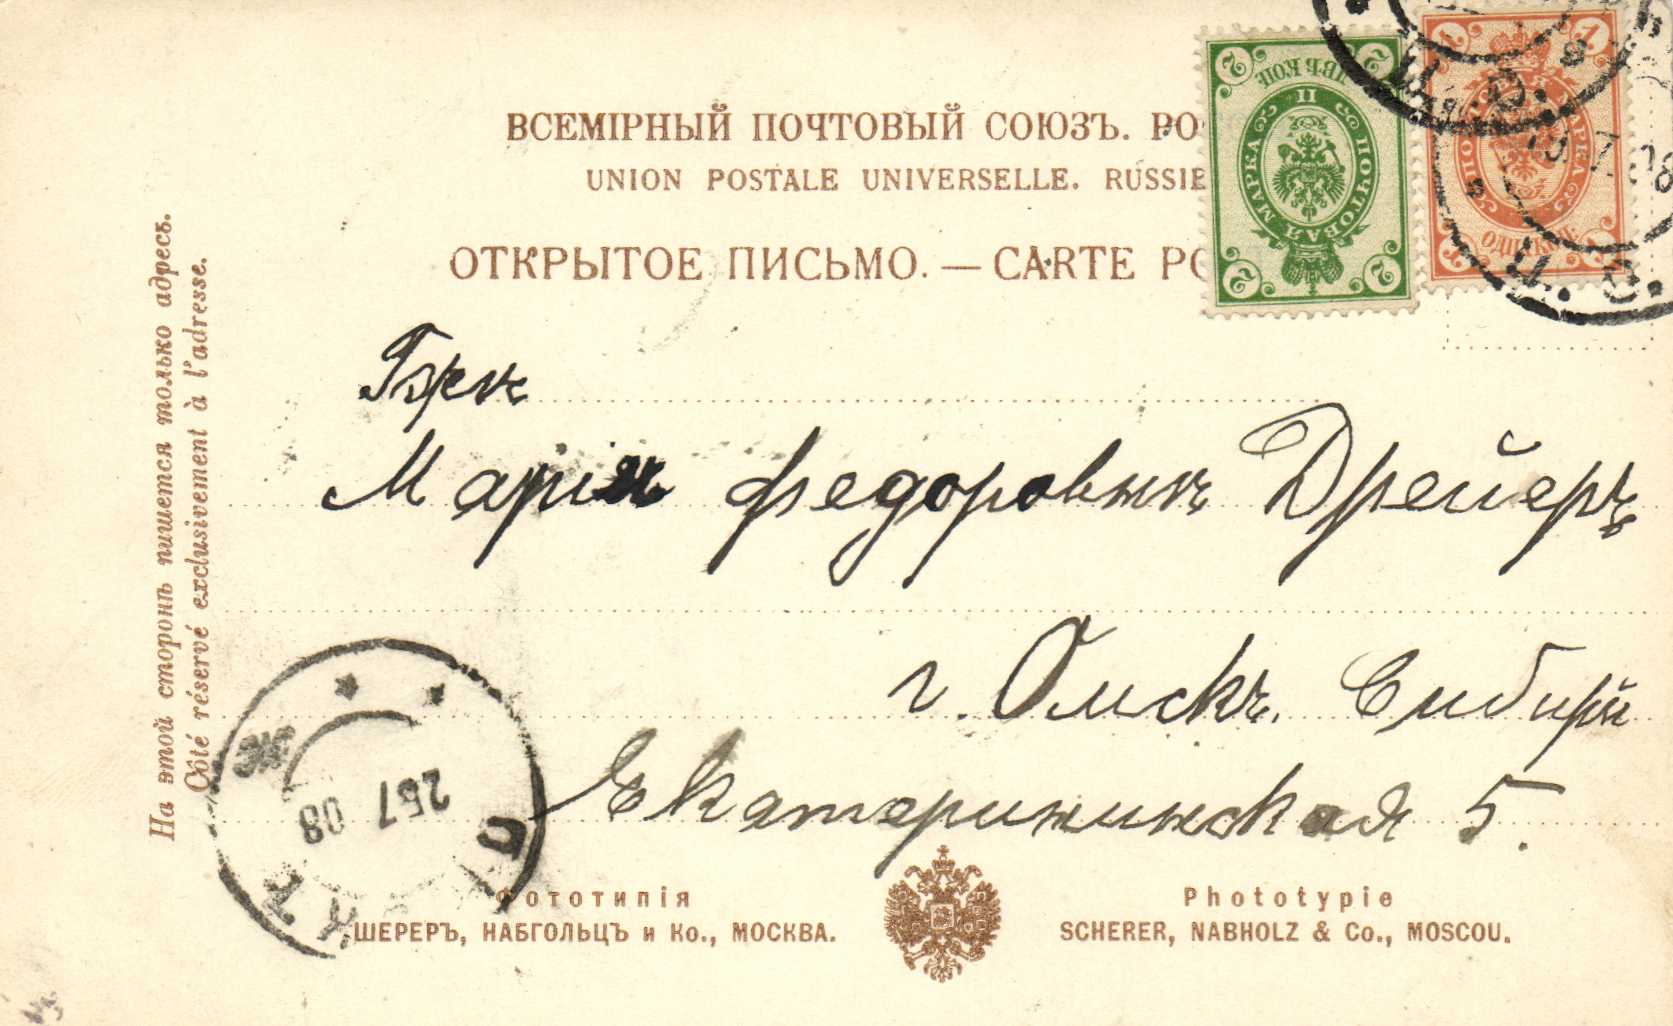 ВСЕМІРНЫЙ ПОЧТОВЫЙ СОЮЗЪ.
UNION POSTALE UNIVERSELLE. RUSSIE
ОТКРЫТОЕ ПИСЬМО. — CARTE
2 2
ДВѢ КОП
II
ПОЧТОВАЯ МАРКА
2 2
1 1
МАРКА
ОДНА КОП.
На этой сторонѣ пишется только адресъ.
Côté réservé exclusivement à l'adresse.
Маріи Федоровнѣ Дрейеръ
г. Омскъ. Сибирь
Екатерининская 5.
25 7 08
Фототипія
ШЕРЕРЪ, НАБГОЛЬЦЪ и Ко., МОСКВА.
Phototypie
SCHERER, NABHOLZ & Co., MOSCOU.